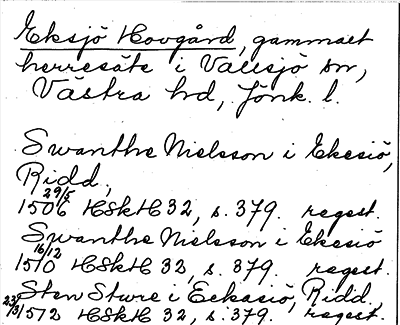 Eksjö Hovgård, gammalt
herresäte i Vallsjö sn,
Västra hd, Jönk. l.
Swanthe Nielsson i Ekesiö,
Ridd,
1506 29/5 HSkH 32, s. 379. regest.
Swanthe Nielsson i Ekesiö
1510 16/12 HSkH 32, s. 379. regest.
Sten Sture i Eckasiö, Ridd.,
1512 HSkH 32, s. 379. regest.